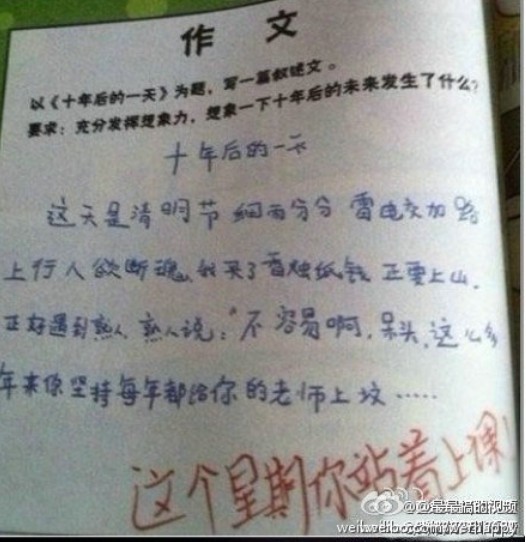 作 文
以《十年后的一天》为题,写一篇叙述文。
要求:充分发挥想象力,想象一下十年后的未来发生了什么?
十年后的一天
这天是清明节 细雨分分 雷电交加 路
上行人欲断魂,我买了香烛纸钱 正要上山,
正好遇到熟人 熟人说:"不容易啊,呆头,这么多
年来你坚持每年都给你的老师上坟……
这个星期你站着上课!
@最最搞的视频